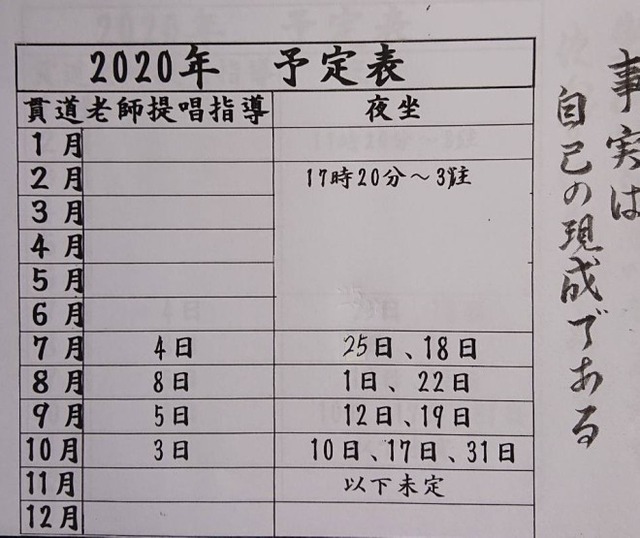 2020年 予定表
貫道老師提唱指導 夜坐
1月
2月 17時20分～3炷
3月
4月
5月
6月
7月 4日 25日、18日
8月 8日 1日、22日
9月 5日 12日、19日
10月 3日 10日、17日、31日
11月 以下未定
12月
事実は
自己の現成である